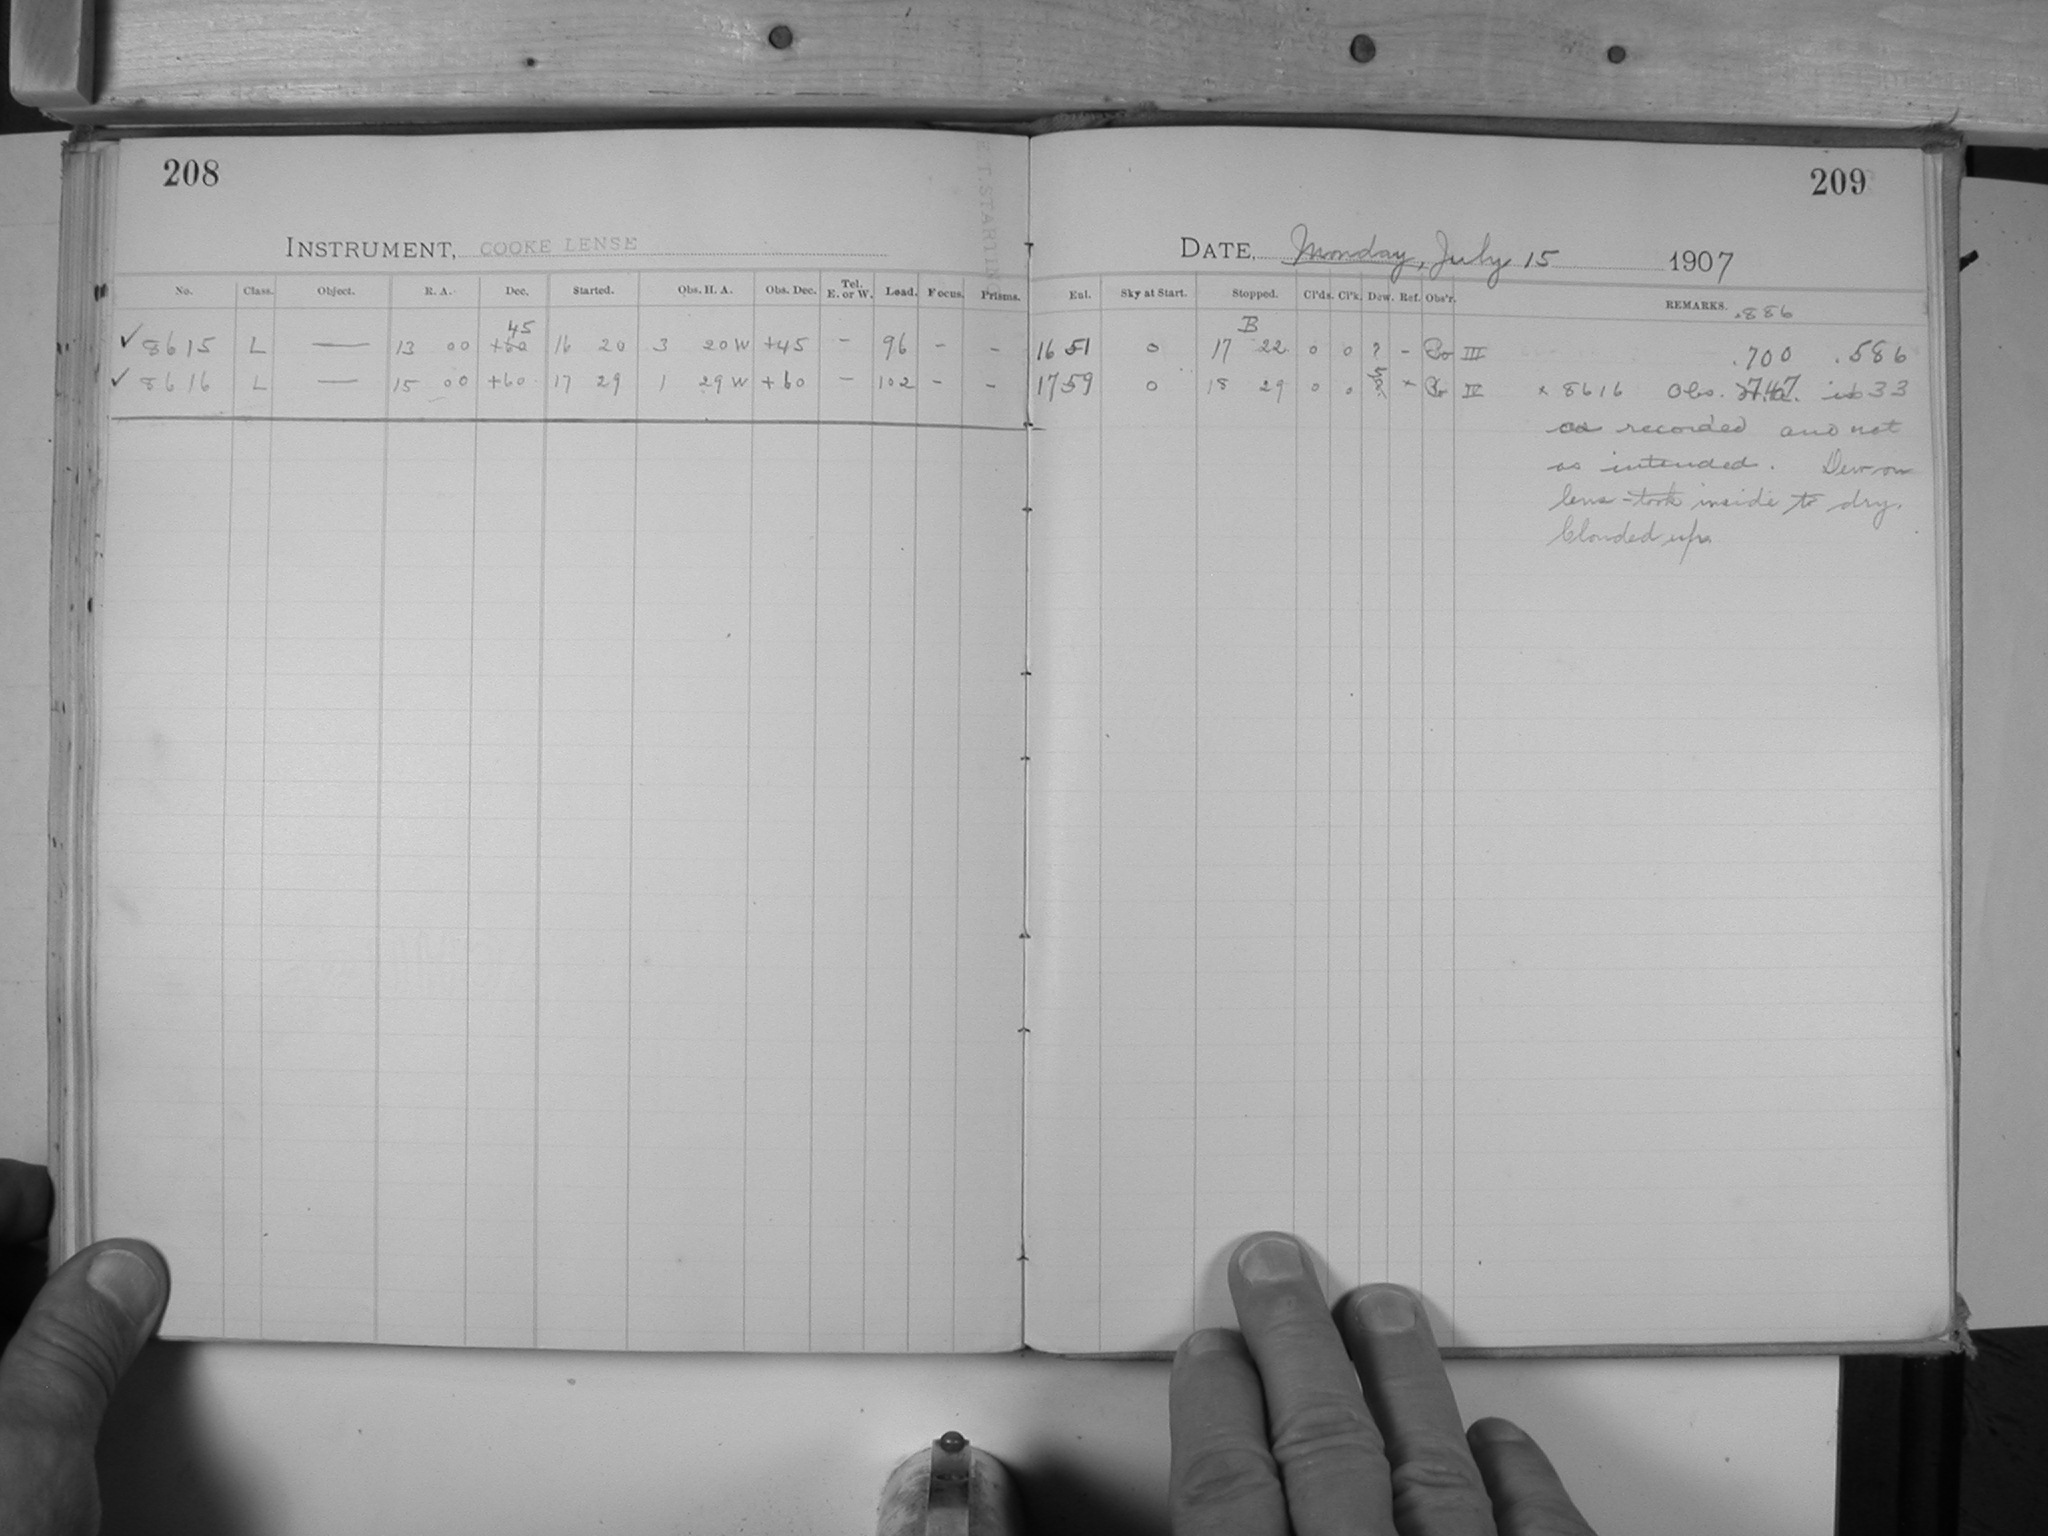 208
INSTRUMENT, COOKE LENSE
No. Class. Object. R. A. Dec. Started. Obs. H. A. Obs. Dec. Tel. E. or W. Load. Focus. Prisms.
45
✓ 8615 L — 13 00 +60 16 20 3 20 W +45 – 96 – –
✓ 8616 L — 15 00 +60 17 29 1 29 W +60 – 102 – –
209
DATE, Monday, July 15 1907
Eal. Sky at Start. Stopped. Cl'ds. Cl'k. Dew. Ref. Obs'r. REMARKS. .886
B
16 51 0 17 22 0 0 ? – III .700 .586
17 59 0 18 29 0 0 × IV × 8616 Obs. is
as recorded and not
as intended. Dew on
lens – took inside to dry.
Clouded up.